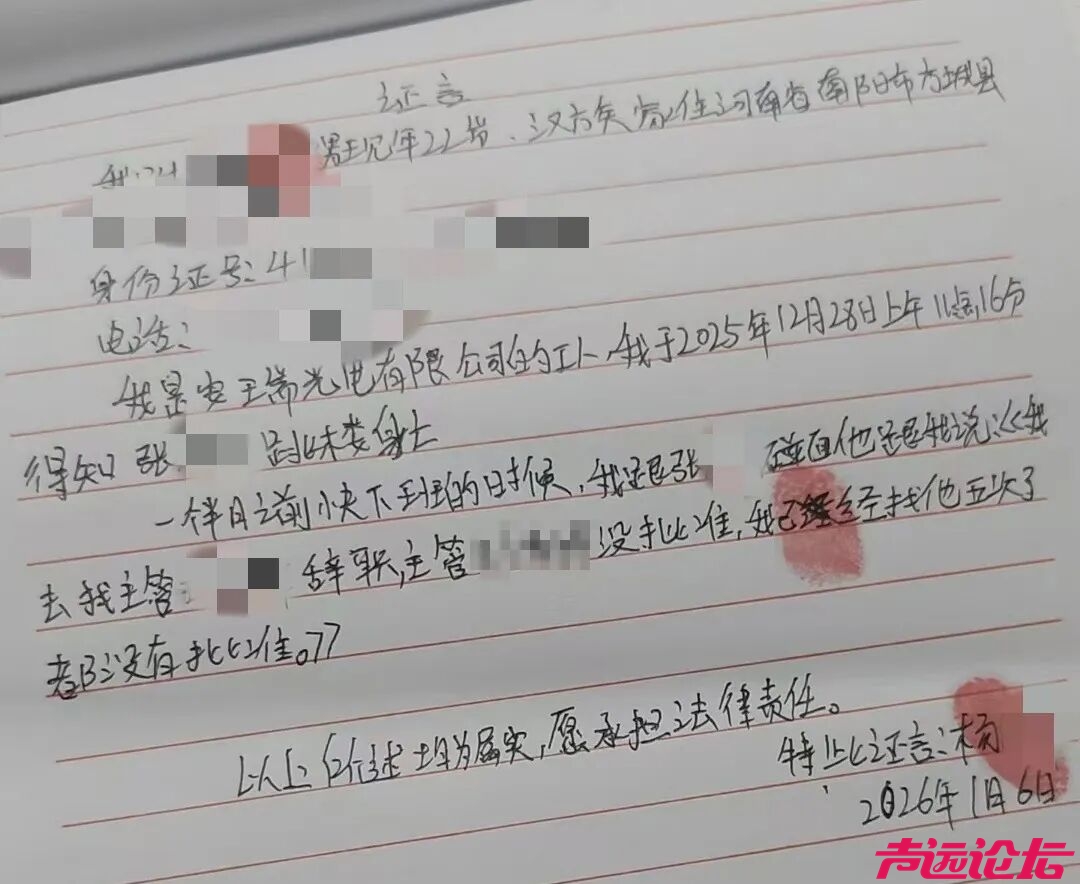 证言
我叫 男现年22岁、汉族家住河南省南阳市方城县
身份证号:41
电话:
我是安 瑞光电有限公司的工人、我于2025年12月28日上午11点16分
得知张 跳楼
一件月之前 下班的时候,我 张 碰面他 我说:《我
去找主管 辞职,主管 没批准,我已经经找他五次了
都没有批准。》
以上 述均为属实,愿承担法律责任。
特此证言:杨
2026年1月6日
声远论坛